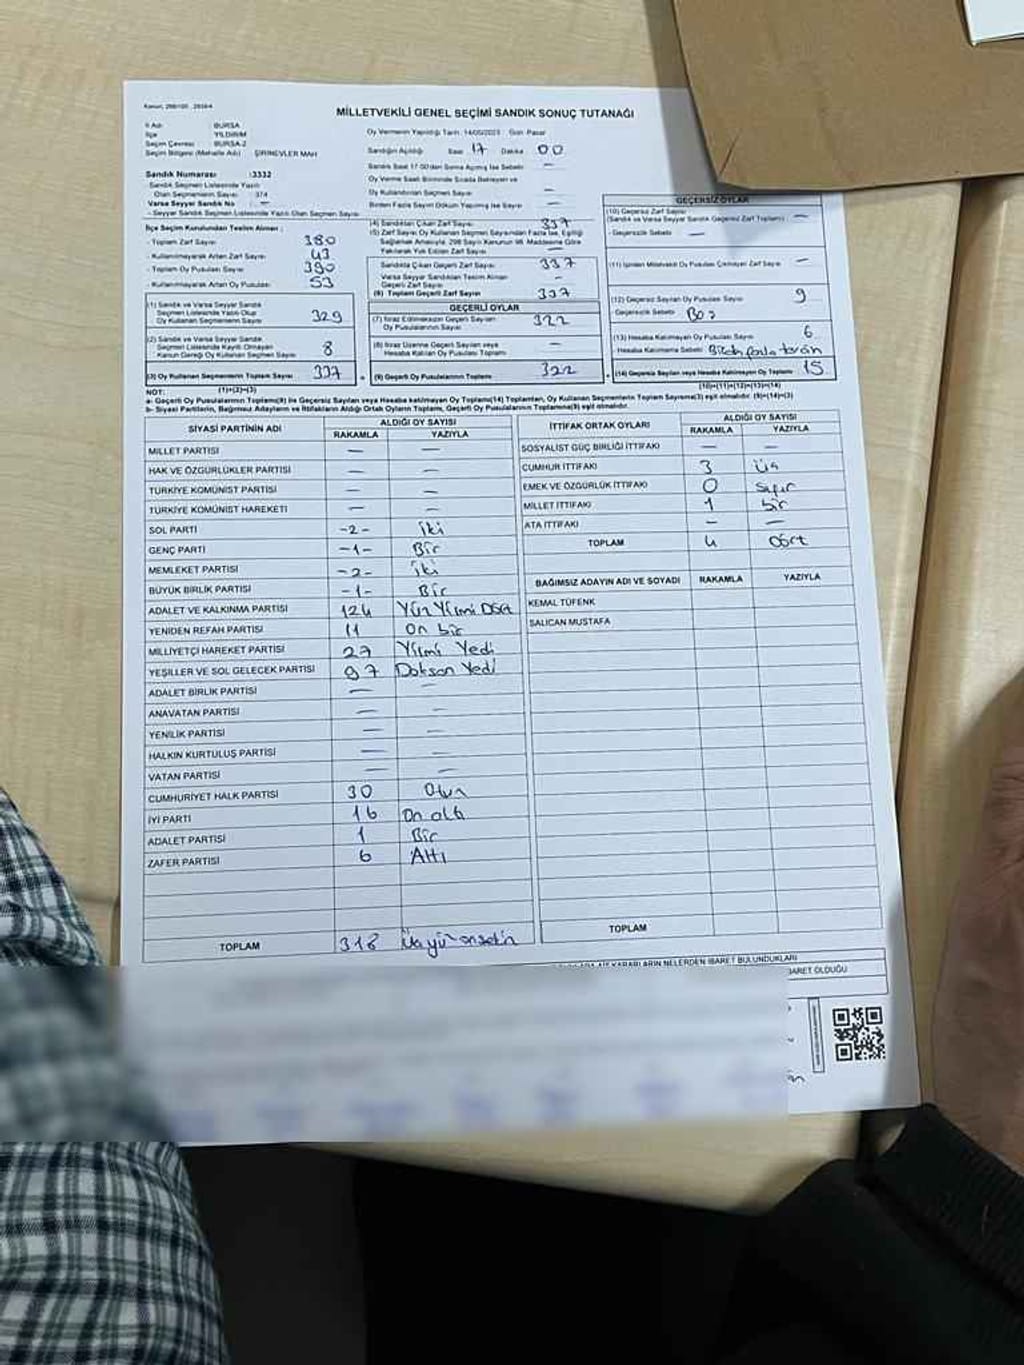 MİLLETVEKİLİ GENEL SEÇİMİ SANDIK SONUÇ TUTANAĞI
İl Adı : BURSA
İlçe : YILDIRIM
Seçim Çevresi : BURSA-2
Seçim Bölgesi (Mahalle Adı) : ŞİRİNEVLER MAH
Sandık Numarası : 3332
Sandık Seçmen Listesinde Yazılı
Olan Seçmenlerin Sayısı : 374
Varsa Seyyar Sandık No : —
- Seyyar Sandık Seçmen Listesinde Yazılı Olan Seçmen Sayısı
Oy Vermenin Yapıldığı Tarih: 14/05/2023 Gün: Pazar
Sandığın Açıldığı Saat 17 Dakika 00
Sandık Saat 17.00'den Sonra Açılmış İse Sebebi —
Oy Verme Saati Bitiminde Sırada Bekleyen ve
Oy Kullandırılan Seçmen Sayısı —
Birden Fazla Sayım Döküm Yapılmış İse Sayısı —
İlçe Seçim Kurulundan Teslim Alınan :
- Toplam Zarf Sayısı 380
- Kullanılmayarak Artan Zarf Sayısı 43
- Toplam Oy Pusulası Sayısı 390
- Kullanılmayarak Artan Oy Pusulası 53
(1) Sandık ve Varsa Seyyar Sandık
Seçmen Listesinde Yazılı Olup
Oy Kullanan Seçmenlerin Sayısı 329
(2) Sandık ve Varsa Seyyar Sandık
Seçmen Listesinde Kayıtlı Olmayan
Kanun Gereği Oy Kullanan Seçmen Sayısı 8
(3) Oy Kullanan Seçmenlerin Toplam Sayısı 337
(1)+(2)=(3)
(4) Sandıktan Çıkan Zarf Sayısı 337
(5) Zarf Sayısı Oy Kullanan Seçmen Sayısından Fazla İse, Eşitliği
Sağlamak Amacıyla, 298 Sayılı Kanunun 98. Maddesine Göre
Yakılarak Yok Edilen Zarf Sayısı —
Sandıkta Çıkan Geçerli Zarf Sayısı 337
Varsa Seyyar Sandıktan Teslim Alınan
Geçerli Zarf Sayısı —
(6) Toplam Geçerli Zarf Sayısı 337
GEÇERLİ OYLAR
(7) İtiraz Edilmeksizin Geçerli Sayılan
Oy Pusulalarının Sayısı 322
(8) İtiraz Üzerine Geçerli Sayılan veya
Hesaba Katılan Oy Pusulası Toplamı —
(9) Geçerli Oy Pusulalarının Toplamı 322
GEÇERSİZ OYLAR
(10) Geçersiz Zarf Sayısı
(Sandık ve Varsa Seyyar Sandık Geçersiz Zarf Toplamı) —
- Geçersizlik Sebebi —
(11) İçinden Milletvekili Oy Pusulası Çıkmayan Zarf Sayısı —
(12) Geçersiz Sayılan Oy Pusulası Sayısı 9
- Geçersizlik Sebebi Boş
(13) Hesaba Katılmayan Oy Pusulası Sayısı 6
- Hesaba Katılmama Sebebi Birden fazla tercih
(14) Geçersiz Sayılan veya Hesaba Katılmayan Oy Toplamı 15
(10)+(11)+(12)+(13)=(14)
NOT:
a- Geçerli Oy Pusulalarının Toplamı(9) ile Geçersiz Sayılan veya Hesaba Katılmayan Oy Toplamı(14) Toplamları, Oy Kullanan Seçmenlerin Toplam Sayısına(3) eşit olmalıdır. (9)+(14)=(3)
b- Siyasi Partilerin, Bağımsız Adayların ve İttifakların Aldığı Ortak Oyların Toplamı, Geçerli Oy Pusulalarının Toplamına(9) eşit olmalıdır.
SİYASİ PARTİNİN ADI ALDIĞI OY SAYISI
RAKAMLA YAZIYLA
MİLLET PARTİSİ — —
HAK VE ÖZGÜRLÜKLER PARTİSİ — —
TÜRKİYE KOMÜNİST PARTİSİ — —
TÜRKİYE KOMÜNİST HAREKETİ — —
SOL PARTİ -2- iki
GENÇ PARTİ -1- Bir
MEMLEKET PARTİSİ -2- iki
BÜYÜK BİRLİK PARTİSİ -1- Bir
ADALET VE KALKINMA PARTİSİ 124 Yüz Yirmi Dört
YENİDEN REFAH PARTİSİ 11 On bir
MİLLİYETÇİ HAREKET PARTİSİ 27 Yirmi Yedi
YEŞİLLER VE SOL GELECEK PARTİSİ 97 Doksan Yedi
ADALET BİRLİK PARTİSİ — —
ANAVATAN PARTİSİ — —
YENİLİK PARTİSİ — —
HALKIN KURTULUŞ PARTİSİ — —
VATAN PARTİSİ — —
CUMHURİYET HALK PARTİSİ 30 Otuz
İYİ PARTİ 16 On altı
ADALET PARTİSİ 1 Bir
ZAFER PARTİSİ 6 Altı
TOPLAM 318 Üçyüzonsekiz
İTTİFAK ORTAK OYLARI ALDIĞI OY SAYISI
RAKAMLA YAZIYLA
SOSYALİST GÜÇ BİRLİĞİ İTTİFAKI — —
CUMHUR İTTİFAKI 3 Üç
EMEK VE ÖZGÜRLÜK İTTİFAKI 0 Sıfır
MİLLET İTTİFAKI 1 bir
ATA İTTİFAKI — —
TOPLAM 4 Dört
BAĞIMSIZ ADAYIN ADI VE SOYADI RAKAMLA YAZIYLA
KEMAL TÜFENK
SALİCAN MUSTAFA
TOPLAM
KARARLARIN NELERDEN İBARET BULUNDUKLARI
İBARET OLDUĞU